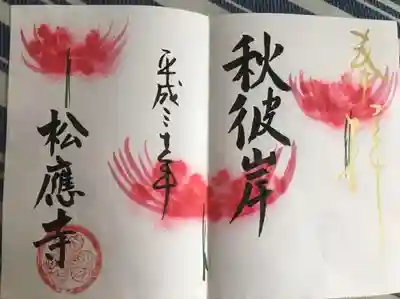 秋彼岸
平成三十年
松應寺